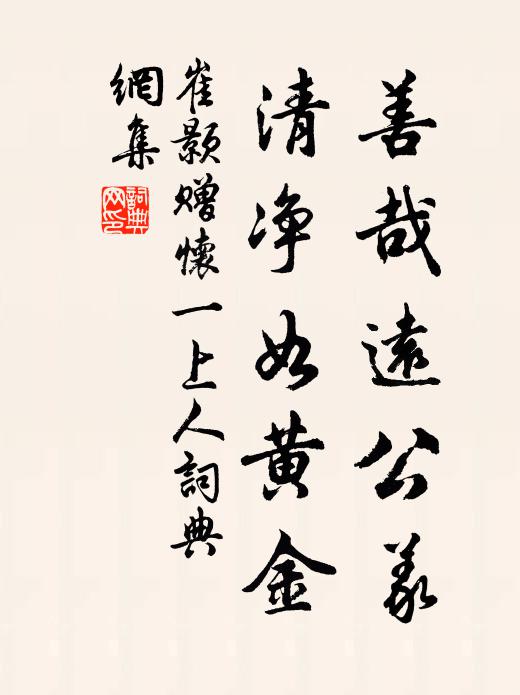 善哉遠公義
清净如黄金
崔颢赠懷一上人詞典
網集
詞典
网印